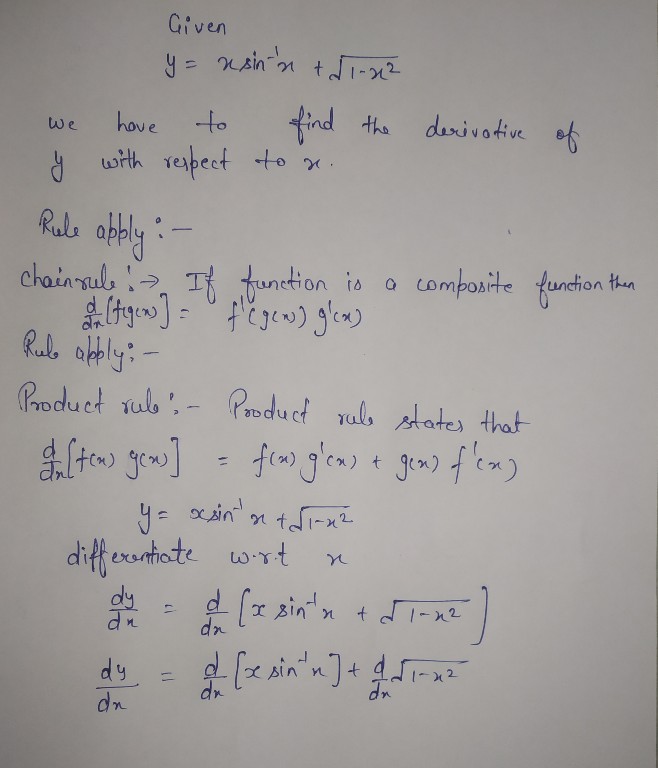 Given
y = x sin⁻¹x + √1-x²
we have to find the derivative of
y with respect to x.
Rule apply :-
chain rule :→ If function is a composite function then
d/dx [f(g(x)] = f'(g(x)) g'(x)
Rule apply :-
Product rule :- Product rule states that
d/dx [f(x) g(x)] = f(x) g'(x) + g(x) f'(x)
y = x sin⁻¹ x + √1-x²
differentiate w.r.t x
dy/dx = d/dx [x sin⁻¹x + √1-x²]
dy/dx = d/dx [x sin⁻¹x] + d/dx √1-x²